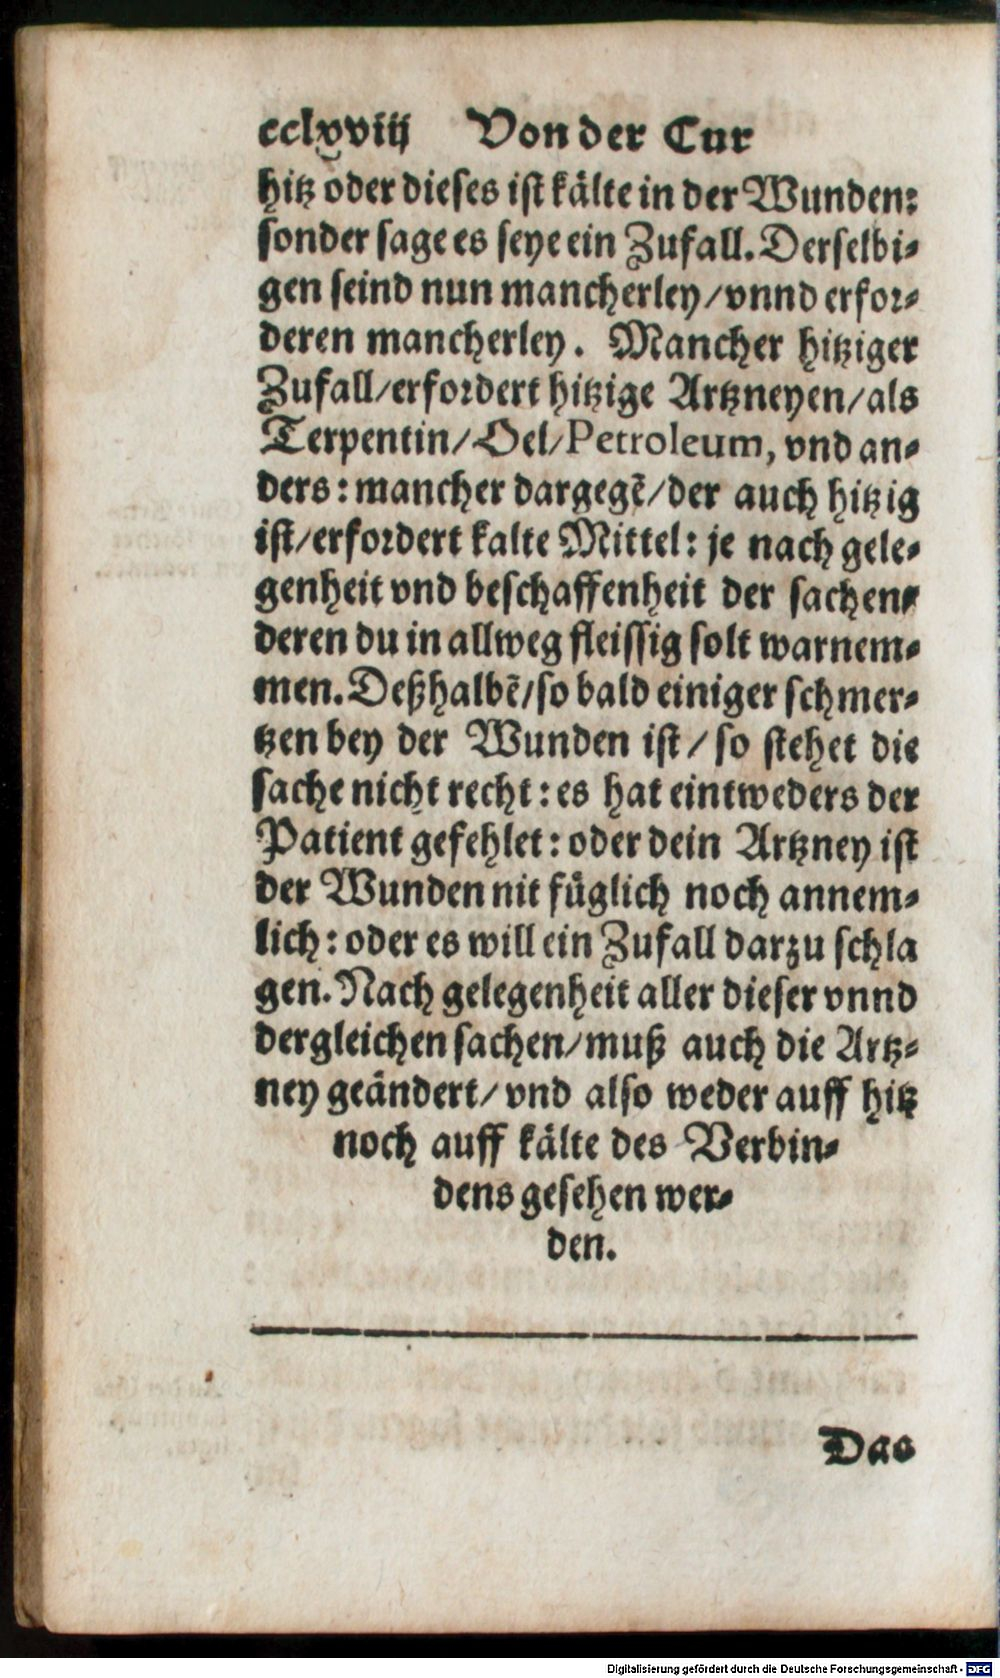 cclxviij Von der Cur
hitz oder dieses ist kälte in der Wunden:
sonder sage es seye ein Zufall. Derselbi-
gen seind nun mancherley/vnnd erfor-
deren mancherley. Mancher hitziger
Zufall/erfordert hitzige Artzneyen/als
Terpentin/Oel/Petroleum, vnd an-
ders: mancher dargegē/der auch hitzig
ist/erfordert kalte Mittel: je nach gele-
genheit vnd beschaffenheit der sachen/
deren du in allweg fleissig solt warnem-
men. Deßhalbē/so bald einiger schmer-
tzen bey der Wunden ist/so stehet die
sache nicht recht: es hat eintweders der
Patient gefehlet: oder dein Artzney ist
der Wunden nit füglich noch annem-
lich: oder es will ein Zufall darzu schla
gen. Nach gelegenheit aller dieser vnnd
dergleichen sachen/muß auch die Artz-
ney geändert/vnd also weder auff hitz
noch auff kälte des Verbin-
dens gesehen wer-
den.
Das
Digitalisierung gefördert durch die Deutsche Forschungsgemeinschaft - DFG